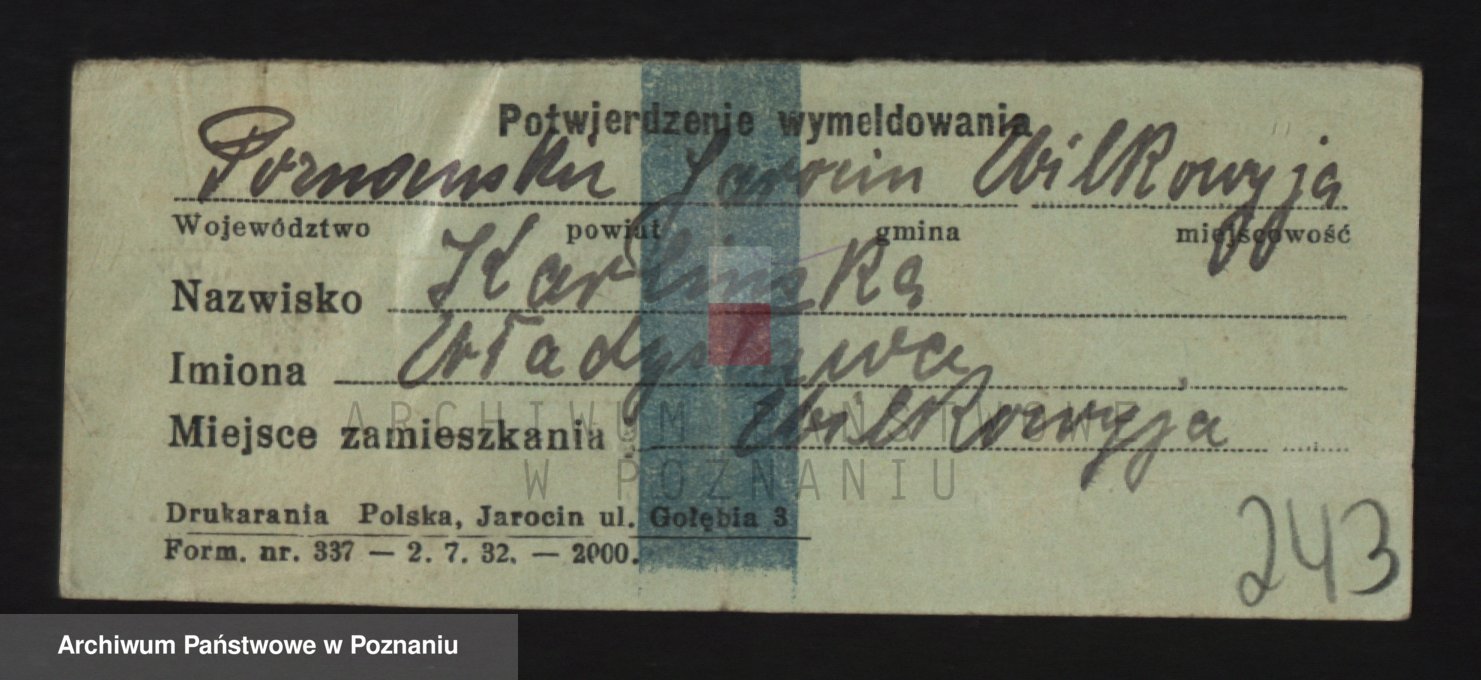 Potwierdzenie wymeldowania
Poznański Jarocin Wilkowyja
Województwo powiat gmina miejscowość
Nazwisko Karlińska
Imiona Władysława
Miejsce zamieszkania Wilkowyja
ARCHIWUM PAŃSTWOWE
W POZNANIU
Drukarania Polska, Jarocin ul. Gołębia 3
Form. nr. 337 — 2. 7. 32. — 2000.
243
Archiwum Państwowe w Poznaniu